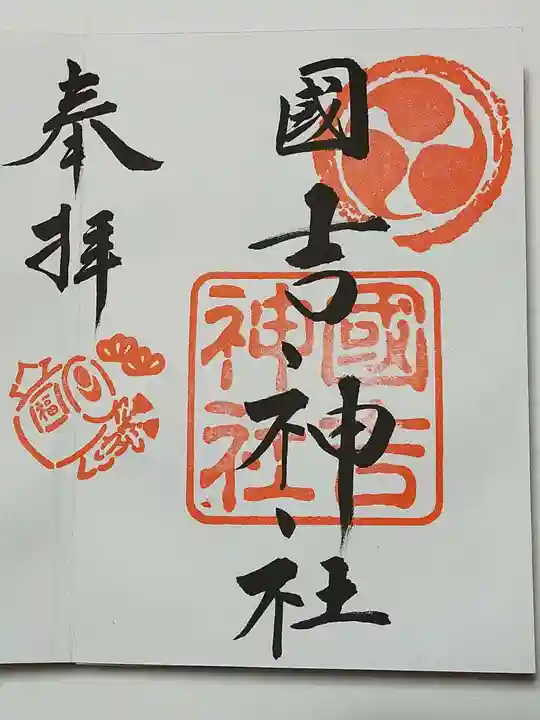 國吉神社
國吉
神社
奉拝
福